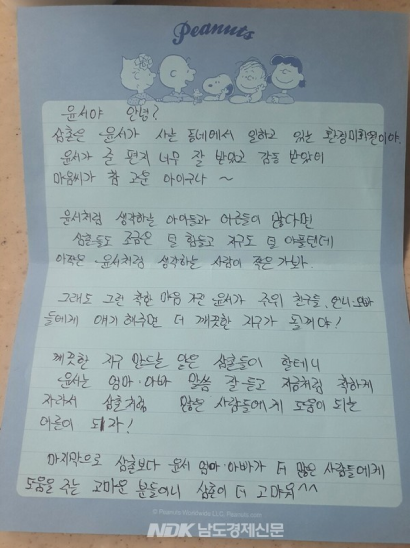 Peanuts
윤서야 안녕?
삼촌은 윤서가 사는 동네에서 일하고 있는 환경미화원이야.
윤서가 준 편지 너무 잘 받았고 감동 받았어
마음씨가 참 고운 아이구나 ~
윤서처럼 생각하는 아이들과 어른들이 많다면
삼촌들도 조금은 덜 힘들고 지구도 덜 아플텐데
아직은 윤서처럼 생각하는 사람이 적은가봐
그래도 그런 착한 마음 가진 윤서가 주위 친구들, 언니·오빠
들에게 얘기 해주면 더 깨끗한 지구가 될거야!
깨끗한 지구 만드는 일은 삼촌들이 할테니
윤서는 엄마·아빠 말씀 잘 듣고 지금처럼 착하게
자라서 삼촌처럼 많은 사람들에게 도움이 되는
어른이 되자!
마지막으로 삼촌보다 윤서 엄마·아빠가 더 많은 사람들에게
도움을 주는 고마운 분들이니 삼촌이 더 고마워^^
© Peanuts Worldwide LLC. Peanuts.com
NDK 남도경제신문